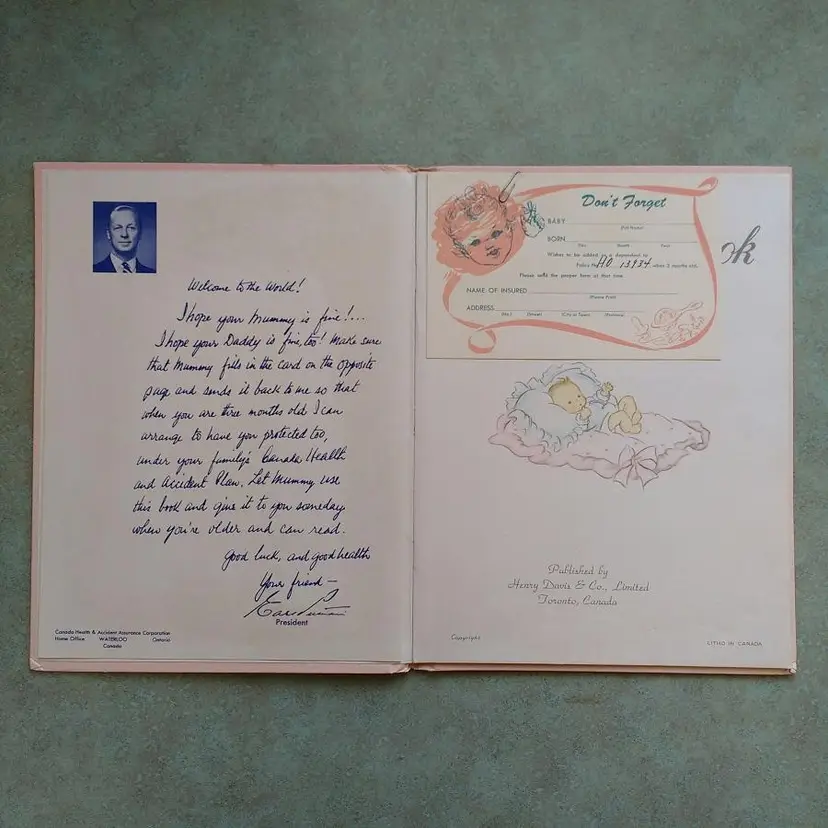 Welcome to the World!
I hope your Mummy is fine!...
I hope your Daddy is fine, too! Make sure
that Mummy fills in the card on the opposite
page and sends it back to me so that
when you are three months old I can
arrange to have you protected too,
under your family's Canada Health
and Accident Plan. Let Mummy use
this book and give it to you someday
when you're older and can read.
Good luck, and good health
Your friend —
President
Canada Health & Accident Assurance Corporation
Home Office WATERLOO Ontario
Canada
Don't Forget
BABY
(Full Name)
BORN
Day Month Year
Wishes to be added as a dependent to
Policy No. HO 13934 when 3 months old.
Please send the proper form at that time
NAME OF INSURED
(Please Print)
ADDRESS
(No.) (Street) (City or Town) (Province)
ok
Published by
Henry Davis & Co., Limited
Toronto, Canada
Copyright
LITHO IN CANADA